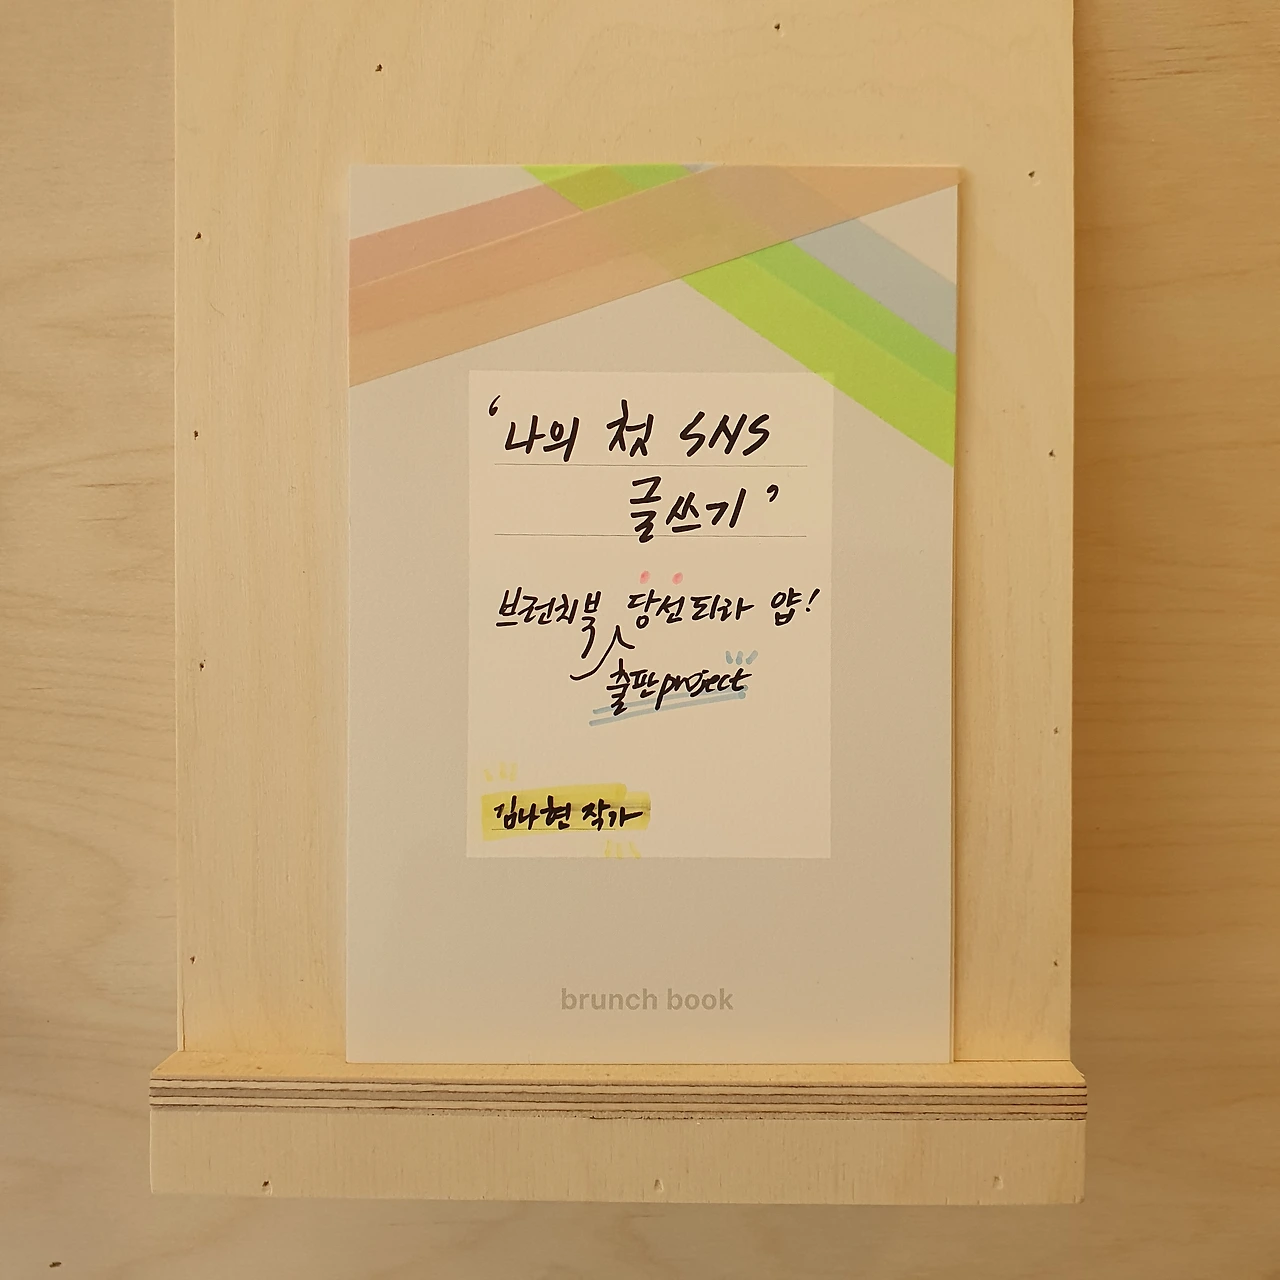 '나의 첫 SNS
글쓰기'
브런치북 당선되라 얍!
출판project
김나현 작가
brunch book